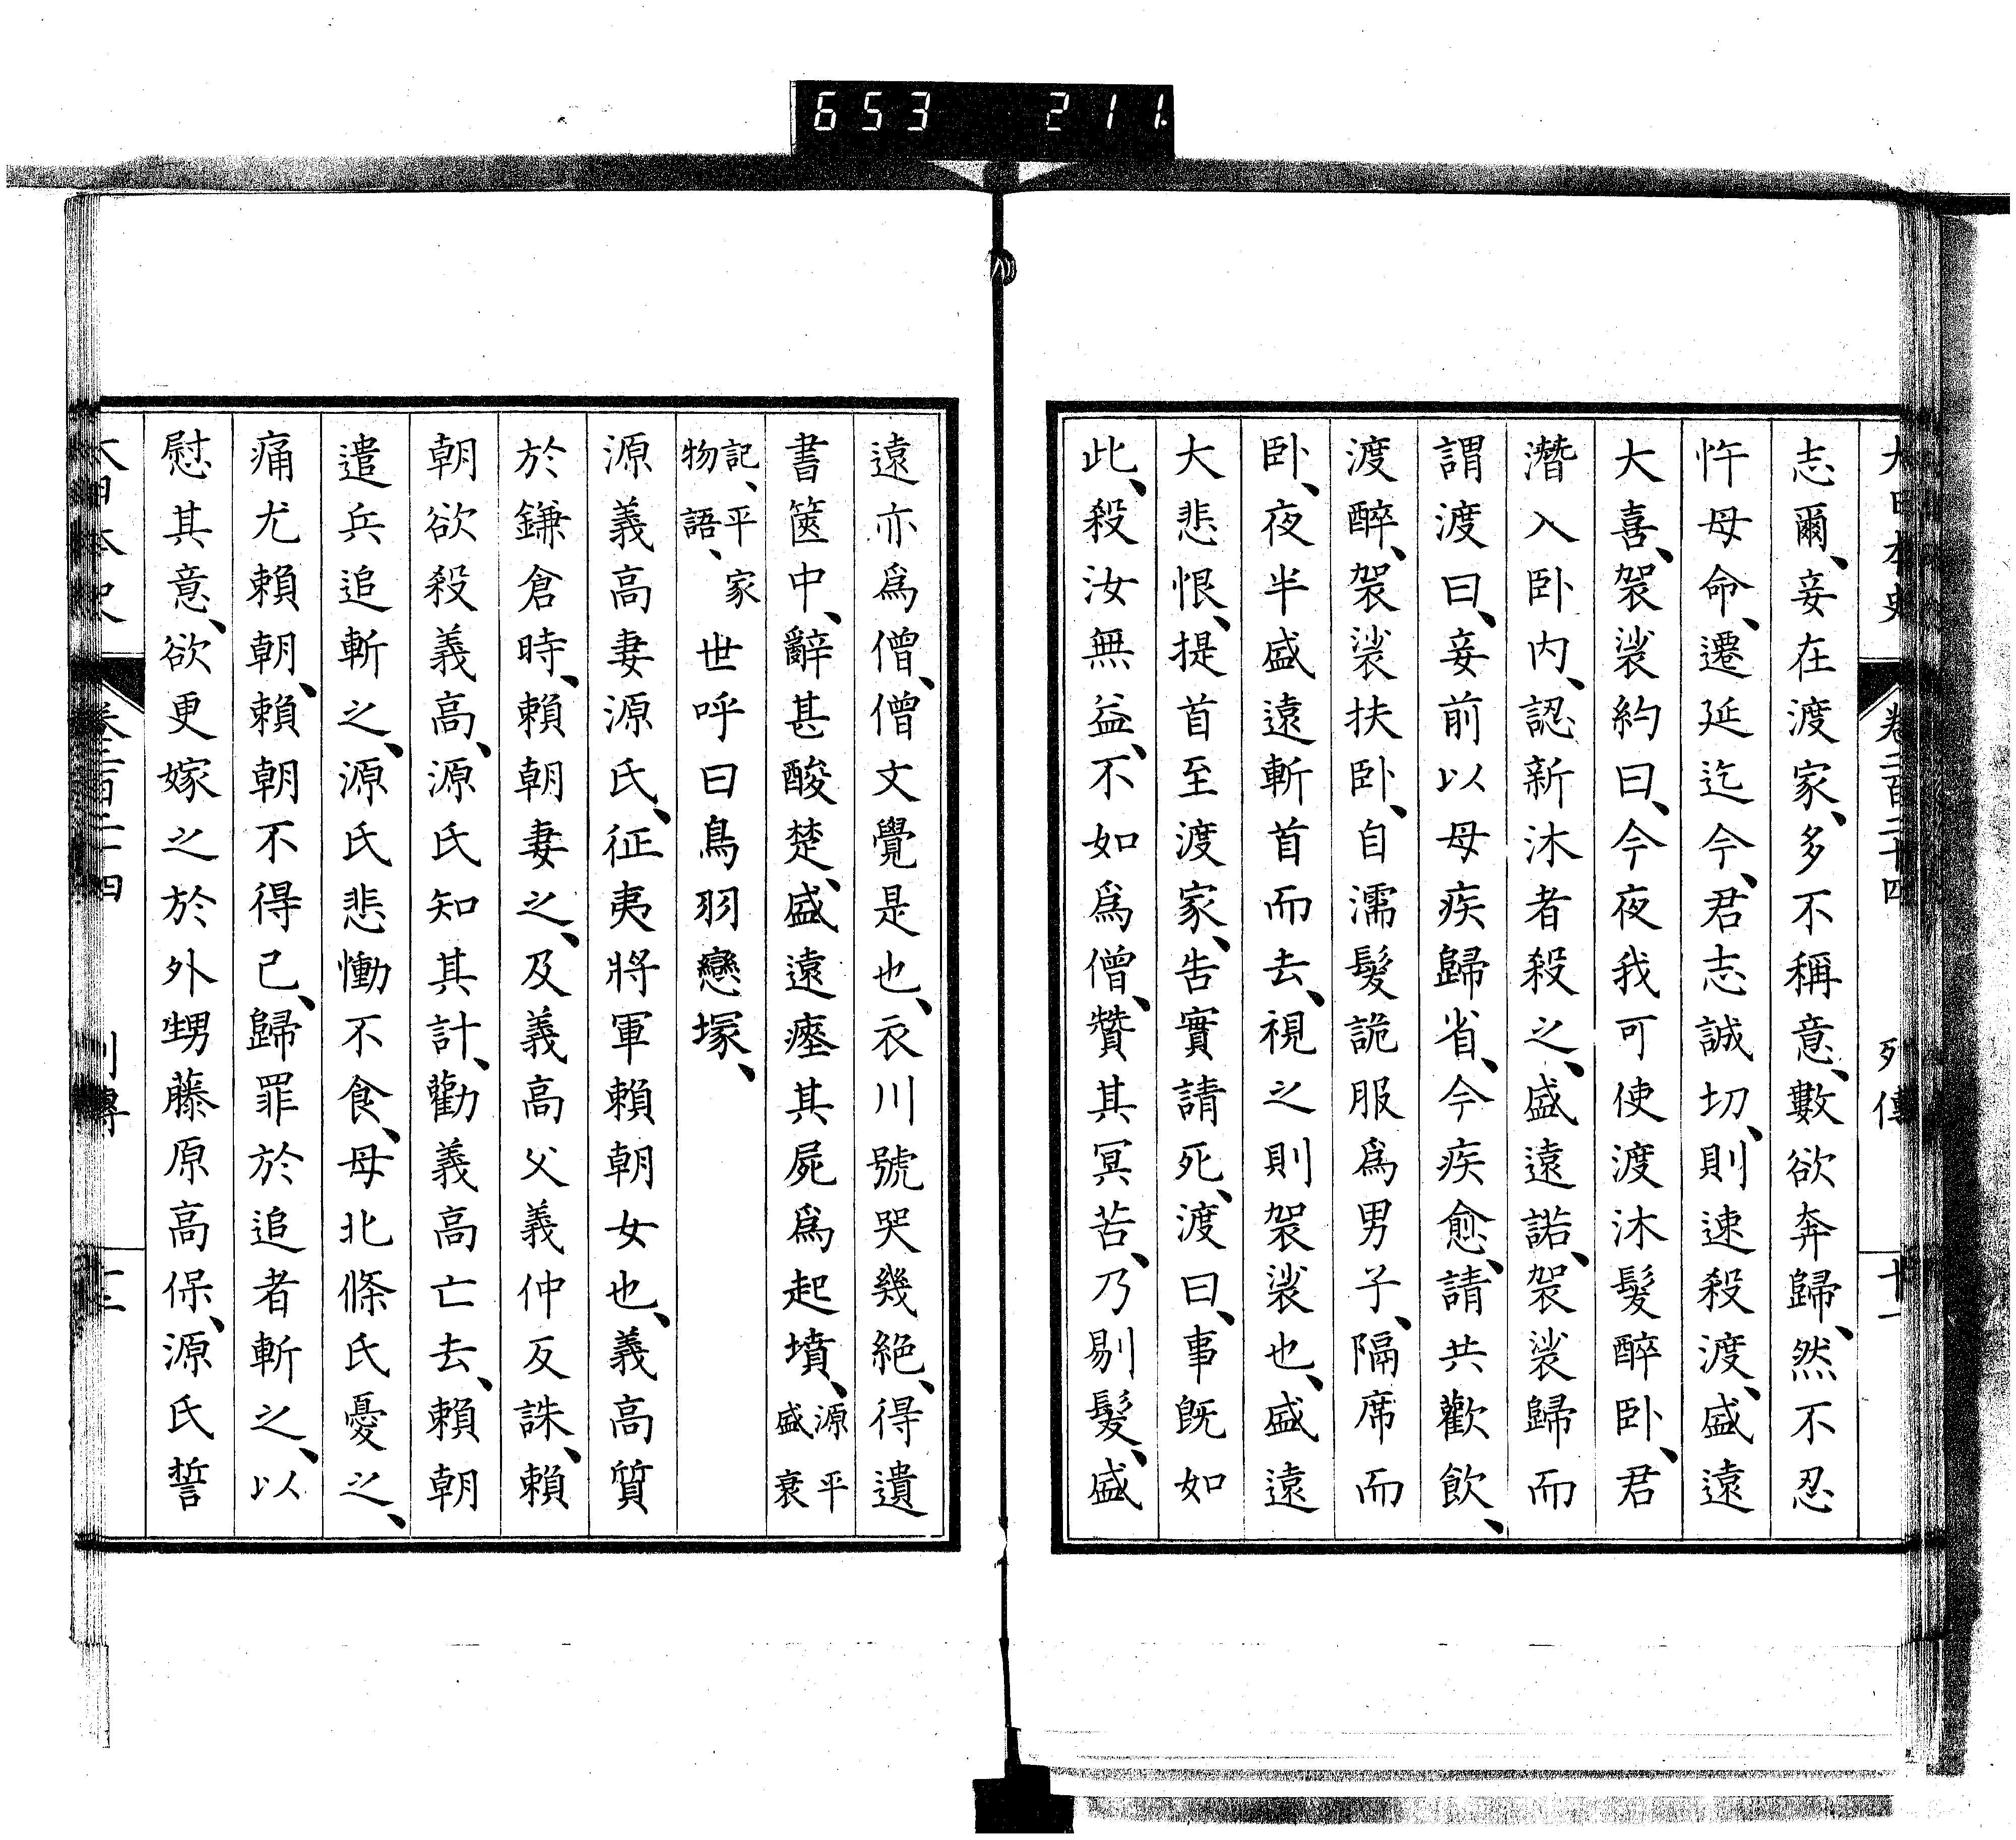 653 211.
大日本史 卷二百二十四 列傳 十一
志爾、妾在渡家、多不稱意、數欲奔歸、然不忍
忤母命、遷延迄今、君志誠切、則速殺渡、盛遠
大喜、袈裟約曰、今夜我可使渡沐髮醉卧、君
潛入卧内、認新沐者殺之、盛遠諾、袈裟歸而
謂渡曰、妾前以母疾歸省、今疾愈、請共歡飮、
渡醉、袈裟扶卧、自濡髮詭服爲男子、隔席而
卧、夜半盛遠斬首而去、視之則袈裟也、盛遠
大悲恨、提首至渡家、告實請死、渡曰、事既如
此、殺汝無益、不如爲僧、贊其冥苦、乃剔髮、盛
遠亦爲僧、僧文覺是也、衣川號哭幾絶、得遺
書篋中、辭甚酸楚、盛遠瘞其屍爲起墳、源平盛衰
記、平家物語、世呼曰鳥羽戀塚、
源義高妻源氏、征夷將軍賴朝女也、義高質
於鎌倉時、賴朝妻之、及義高父義仲反誅、賴
朝欲殺義高、源氏知其計、勸義高亡去、賴朝
遣兵追斬之、源氏悲慟不食、母北條氏憂之、
痛尤賴朝、賴朝不得已、歸罪於追者斬之、以
慰其意、欲更嫁之於外甥藤原高保、源氏誓
大日本史 卷二百二十四 列傳